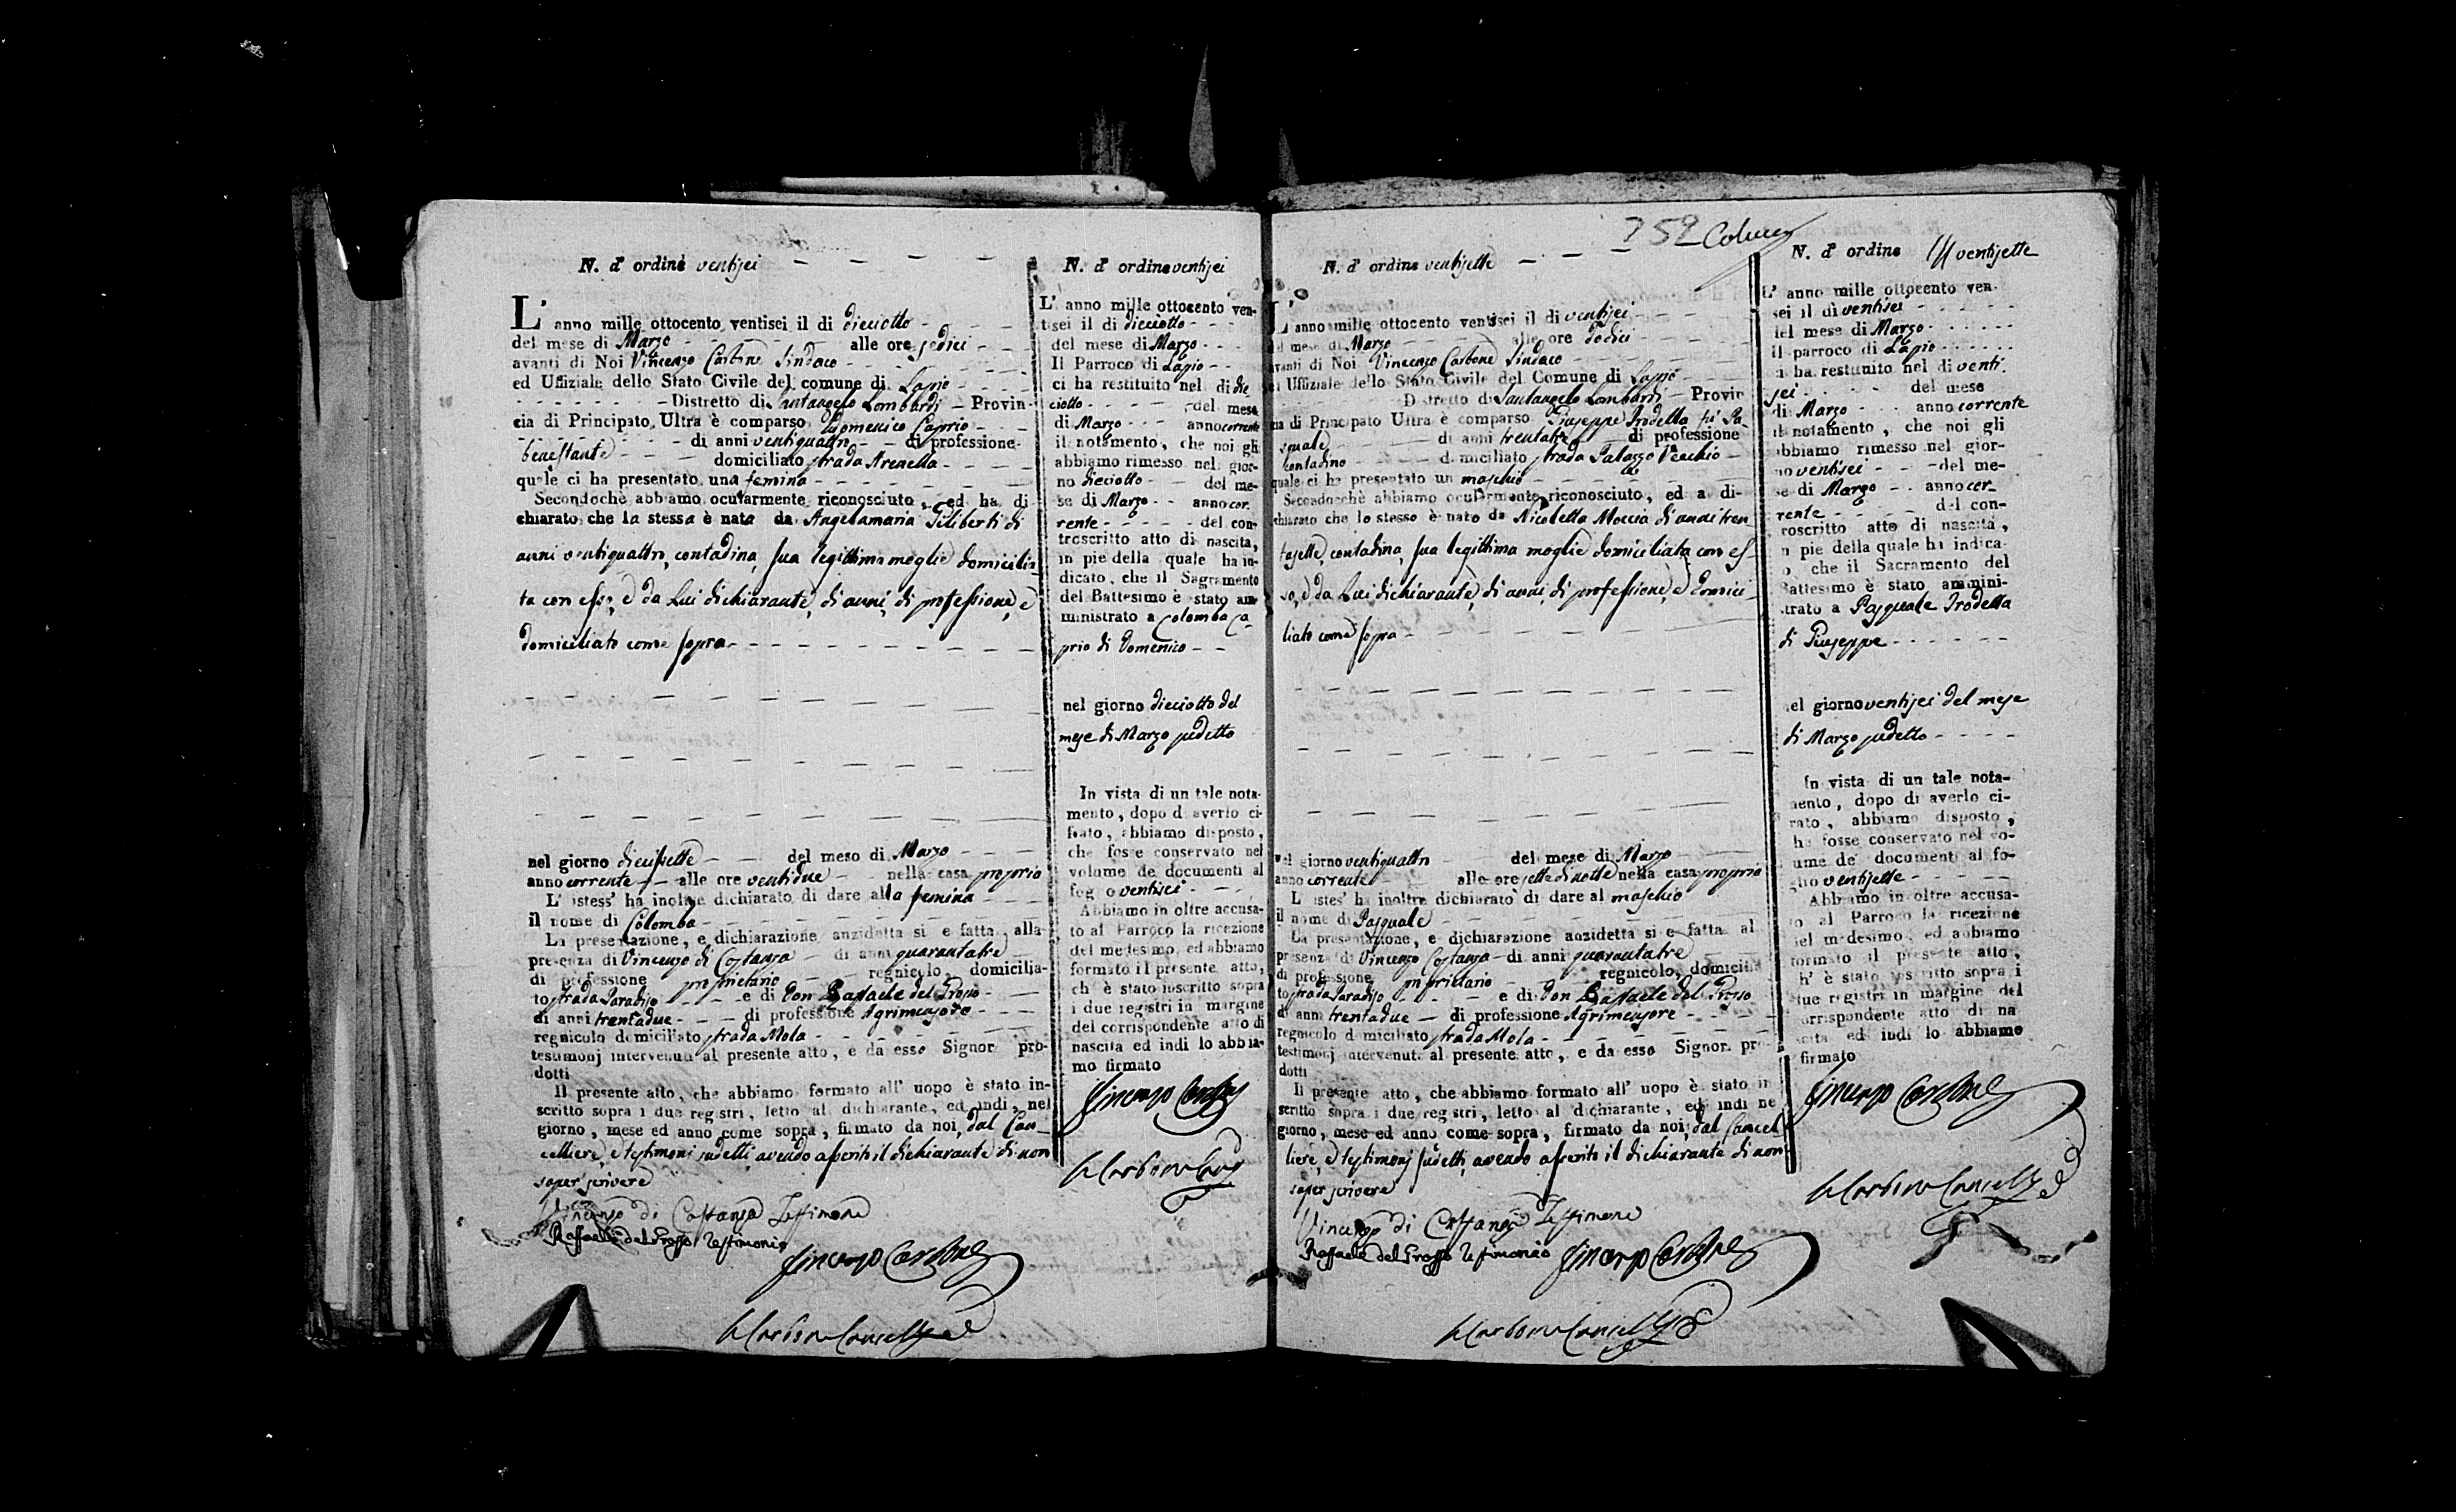 N. d' ordine ventisei
L' anno mille ottocento ventisei il di dieciotto
del mese di Marzo alle ore sedici
avanti di Noi Vincenzo Carbone Sindaco
ed Uffiziale dello Stato Civile del comune di Lapio
Distretto di Santangelo Lombardi Provin-
cia di Principato Ultra è comparso Domenico Caprio
di anni ventiquattro di professione
benestante domiciliato strada Arenella
quale ci ha presentato una femina
Secondochè abbiamo ocularmente riconosciuto, ed ha di-
chiarato che la stessa è nata da Angelamaria Feliberti di
anni ventiquattro, contadina, sua legittima moglie domicilia-
ta con esso, e da Lui dichiarante, di anni, di professione, e
domiciliato come sopra
nel giorno diecisette del mese di Marzo
anno corrente alle ore ventidue nella casa propria
L' istess' ha inoltre dichiarato di dare alla femina
il nome di Colomba
La presentazione, e dichiarazione anzidetta si e fatta alla
presenza di Vincenzo di Costanza di anni quarantatre
di professione proprietario regnicolo, domicilia-
to strada Paradiso e di Don Raffaele del Grosso
di anni trentadue di professione Agrimensore
regnicolo domiciliato strada Mola
testimonj intervenuti al presente atto, e da esso Signor pro-
dotti
Il presente atto, che abbiamo formato all' uopo è stato in-
scritto sopra i due registri, letto al dichiarante, ed indi nel
giorno, mese ed anno come sopra, firmato da noi, dal Can-
celliere, e testimonj sudetti avendo asserito il dichiarante di non
saper scrivere
Vincenzo di Costanza Testimone
Raffaele del Grosso Testimonio
Vincenzo Carbone
N. d' ordine ventisei
L' anno mille ottocento ven-
tisei il di dieciotto
del mese di Marzo
Il Parroco di Lapio
ci ha restituito nel di die
ciotto del mese
di Marzo anno corrente
il notamento, che noi gli
abbiamo rimesso nel gior-
no dieciotto del me-
se di Marzo anno cor-
rente del con-
troscritto atto di nascita,
in pie della quale ha in-
dicato, che il Sagramento
del Battesimo è stato am-
ministrato a Colomba Ca-
prio di Domenico
nel giorno dieciotto del
mese di Marzo sudetto
In vista di un tale nota-
mento, dopo d averlo ci-
frato, abbiamo disposto,
che fosse conservato nel
volume de documenti al
foglio ventisei
Abbiamo in oltre accusa-
to al Parroco la ricezione
del medesimo, ed abbiamo
formato il presente atto,
ch' è stato inscritto sopra
i due registri in margine
del corrispondente atto di
nascita ed indi lo abbia-
mo firmato
Vincenzo Carbone
N. d' ordine ventisette
L' anno mille ottocento ventisei il di ventisei
del mese di Marzo alle ore dodici
avanti di Noi Vincenzo Carbone Sindaco
ed Uffiziale dello Stato Civile del Comune di Lapio
Distretto di Santangelo Lombardi Provin
cia di Principato Ultra è comparso Giuseppe Trodella fu Pa-
squale di anni trentatre di professione
contadino domiciliato strada Palazzo Vecchio
quale ci ha presentato un maschio
Secondocchè abbiamo ocularmente riconosciuto, ed a di-
chiarato che lo stesso è nato da Nicoletta Moccia di anni tren
tasette, contadina, sua legittima moglie domiciliata con es
so, e da Lui dichiarante, di anni, di professione, e domici
liato come sopra
nel giorno ventiquattro del mese di Marzo
anno corrente alle ore sette di notte nella casa propria
L' istes' ha inoltre dichiarato di dare al maschio
il nome di Pasquale
La presentazione, e dichiarazione anzidetta si e fatta al
presenza di Vincenzo Costanza di anni quarantatre
di professione proprietario regnicolo, domicilia
to strada Paradiso e di Don Raffaele del Grosso
di anni trentadue di professione Agrimensore
regnicolo domiciliato strada Mola
testimonj intervenuti al presente atto, e da esso Signor pro
dotti
Il presente atto, che abbiamo formato all' uopo è stato in
scritto sopra i due registri, letto al dichiarante, ed indi ne
giorno, mese ed anno come sopra, firmato da noi, dal Cancel
liere, e testimonj sudetti, avendo asserito il dichiarante di non
saper scrivere
Vincenzo di Costanza Testimone
Raffaele del Grosso Testimonio
Vincenzo Carbone
N. d' ordine ventisette
L' anno mille ottocento ven-
sei il di ventisei
del mese di Marzo
il parroco di Lapio
ci ha restituito nel di venti
sei del mese
di Marzo anno corrente
il notamento, che noi gli
abbiamo rimesso nel gior-
no ventisei del me-
se di Marzo anno cor-
rente del con-
troscritto atto di nascita,
in pie della quale ha indica-
to, che il Sacramento del
Battesimo è stato ammini-
strato a Pasquale Trodella
di Giuseppe
nel giorno ventisei del mese
di Marzo sudetto
In vista di un tale nota-
mento, dopo di averlo ci-
frato, abbiamo disposto,
che fosse conservato nel vo-
lume de' documenti al fo-
glio ventisette
Abbiamo in oltre accusa-
to al Parroco la ricezione
del medesimo, ed abbiamo
formato il presente atto,
ch' è stato inscritto sopra i
due registri in margine del
corrispondente atto di na
scita ed indi lo abbiamo
firmato
Vincenzo Carbone